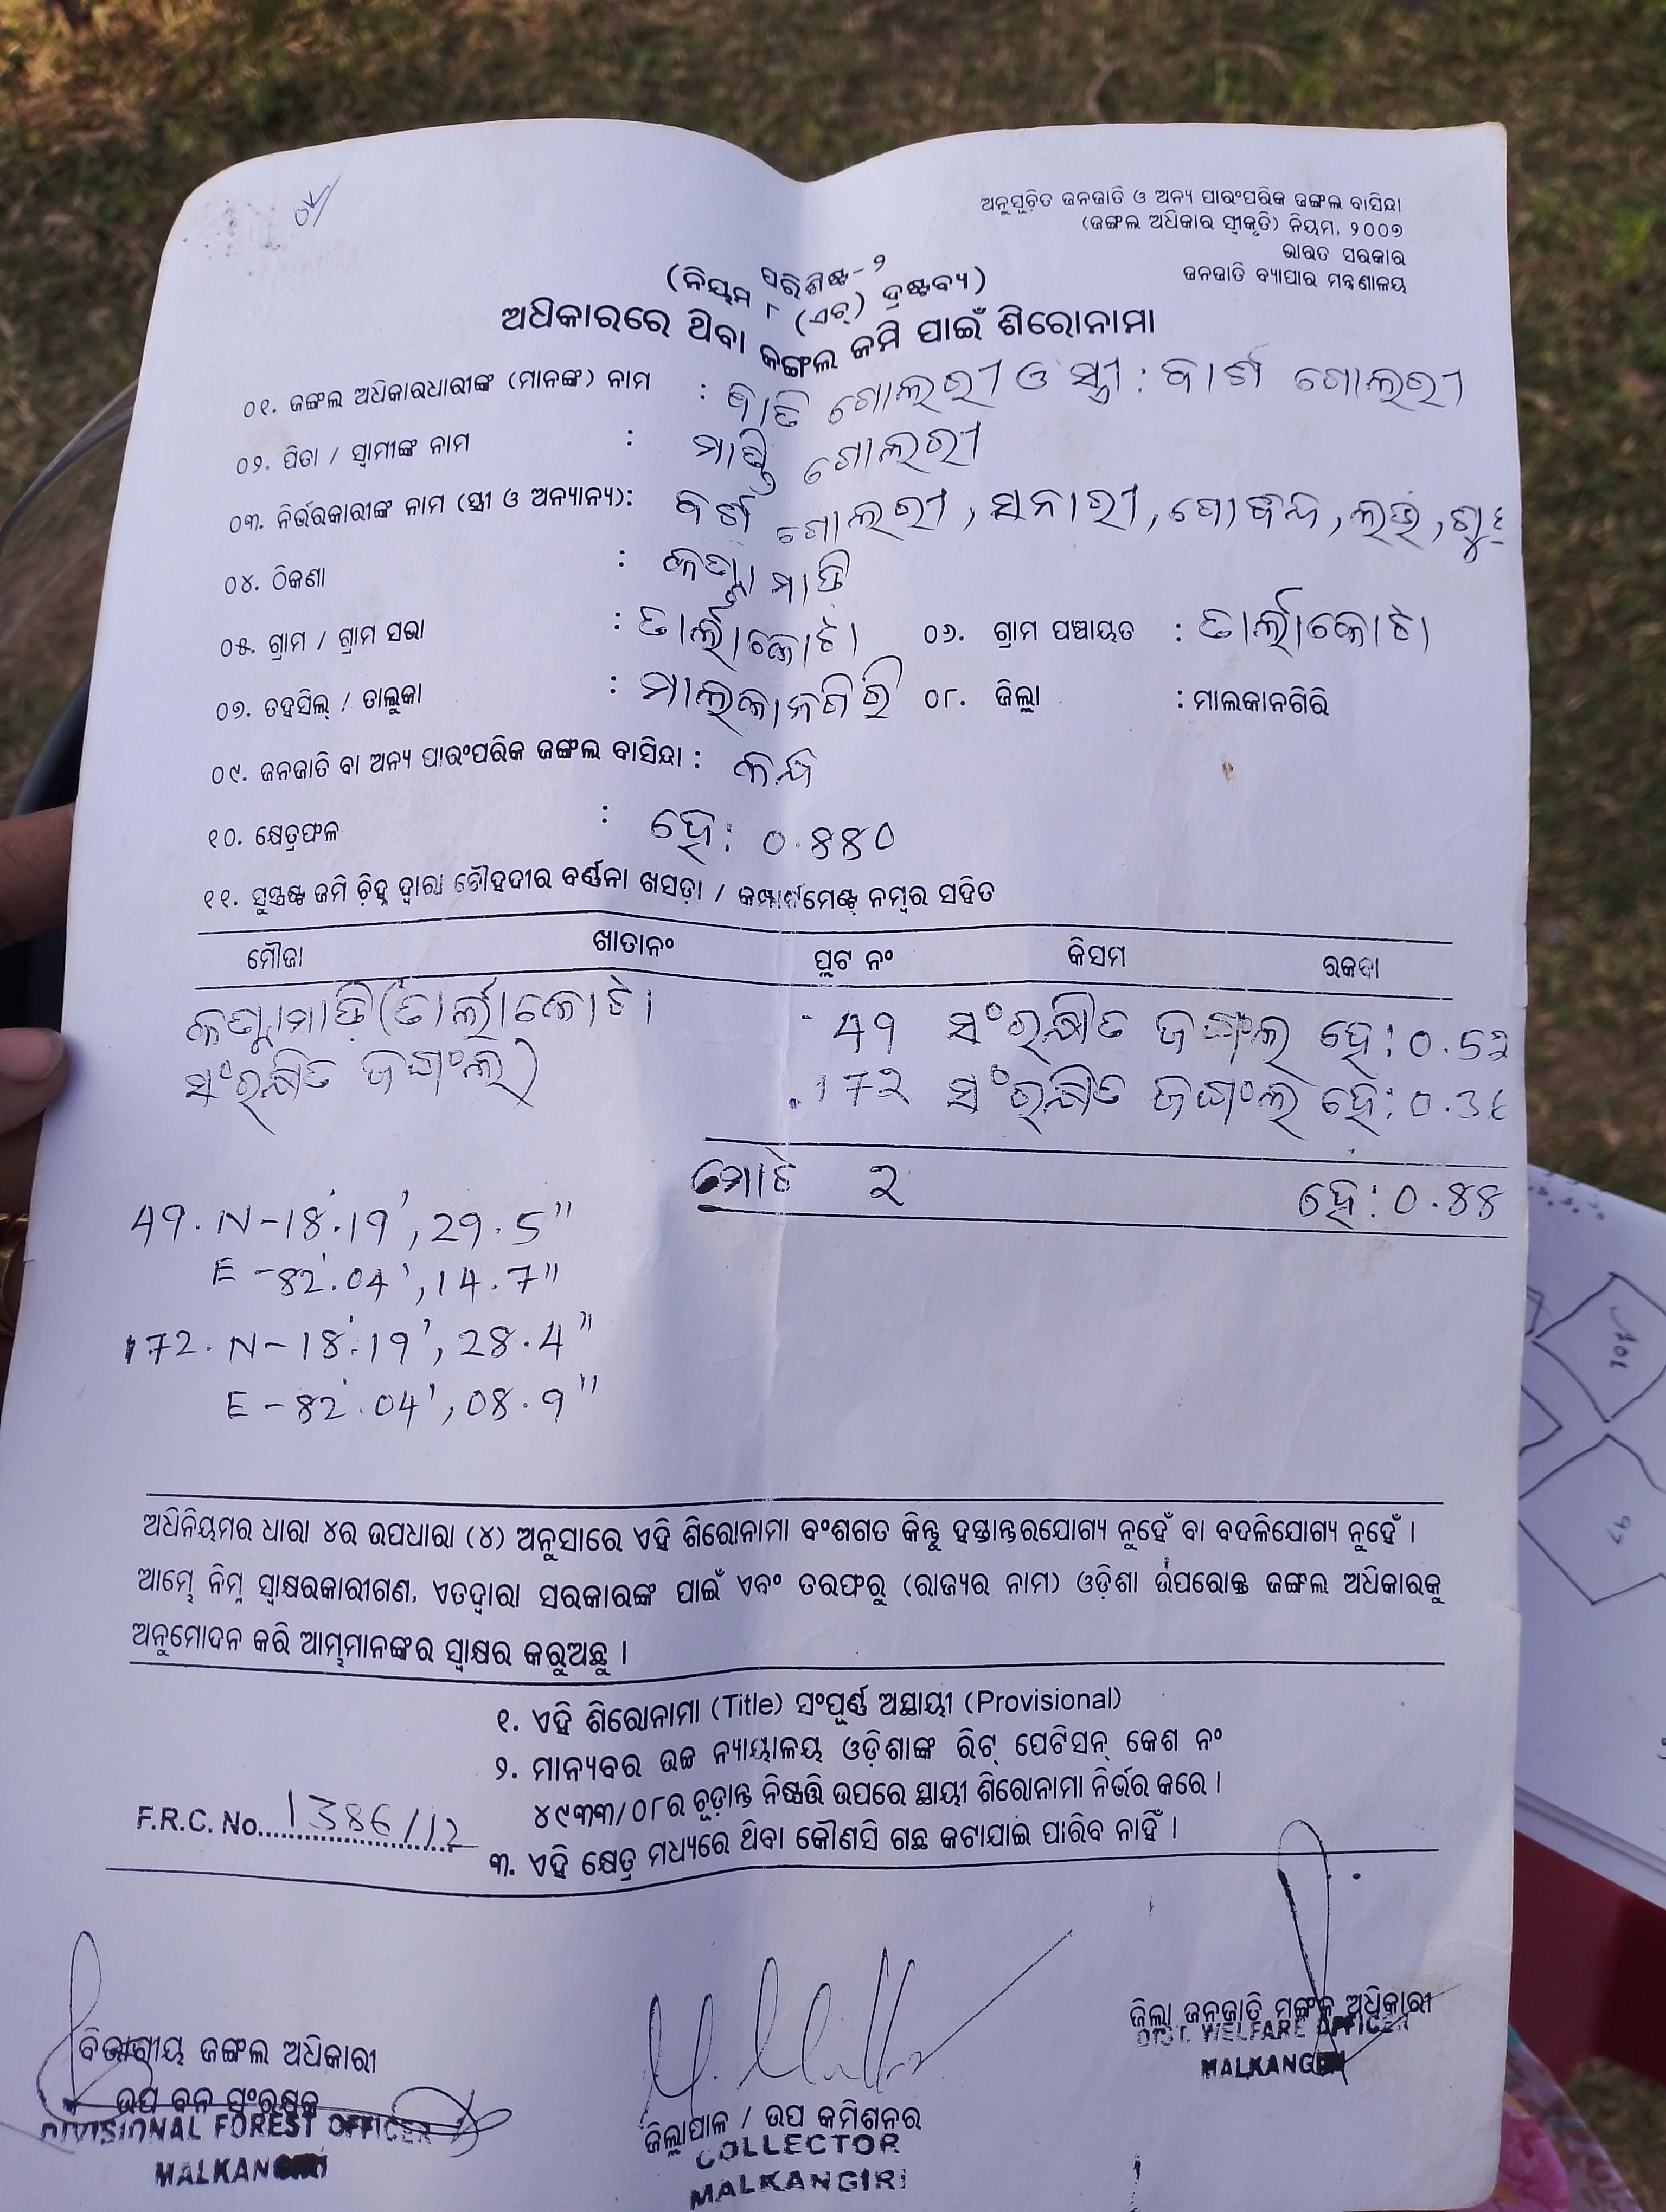 ଅନୁସୂଚିତ ଜନଜାତି ଓ ଅନ୍ୟ ପାରଂପରିକ ଜଙ୍ଗଲ ବାସିନ୍ଦା
(ଜଙ୍ଗଲ ଅଧିକାର ସ୍ୱୀକୃତି) ନିୟମ, ୨୦୦୭
ଭାରତ ସରକାର
ଜନଜାତି ବ୍ୟାପାର ମନ୍ତ୍ରଣାଳୟ
ପରିଶିଷ୍ଟ-୨
(ନିୟମ ୮ (ଏଚ୍) ଦ୍ରଷ୍ଟବ୍ୟ)
ଅଧିକାରରେ ଥିବା ଜଙ୍ଗଲ ଜମି ପାଇଁ ଶିରୋନାମା
୦୧. ଜଙ୍ଗଲ ଅଧିକାରଧାରୀଙ୍କ (ମାନଙ୍କ) ନାମ : ଗୋଲରୀ ଓ ସ୍ତ୍ରୀ: ଗୋଲରୀ
୦୨. ପିତା / ସ୍ୱାମୀଙ୍କ ନାମ : ଗୋଲରୀ
୦୩. ନିର୍ଭରକାରୀଙ୍କ ନାମ (ସ୍ତ୍ରୀ ଓ ଅନ୍ୟାନ୍ୟ): ଗୋଲରୀ, ସନାରୀ, ଗୋବିନ୍ଦ,
୦୪. ଠିକଣା :
୦୫. ଗ୍ରାମ / ଗ୍ରାମ ସଭା : ତାର୍ଲାକୋଟା ୦୬. ଗ୍ରାମ ପଞ୍ଚାୟତ : ତାର୍ଲାକୋଟା
୦୭. ତହସିଲ୍ / ତାଲୁକା : ମାଲକାନଗିରି ୦୮. ଜିଲ୍ଲା : ମାଲକାନଗିରି
୦୯. ଜନଜାତି ବା ଅନ୍ୟ ପାରଂପରିକ ଜଙ୍ଗଲ ବାସିନ୍ଦା : କନ୍ଧ
୧୦. କ୍ଷେତ୍ରଫଳ : ହେ: 0.880
୧୧. ସୁସ୍ପଷ୍ଟ ଜମି ଚିହ୍ନ ଦ୍ୱାରା ଚୌହଦୀର ବର୍ଣ୍ଣନା ଖସଡ଼ା / କମ୍ପାର୍ଟମେଣ୍ଟ ନମ୍ବର ସହିତ
ମୌଜା ଖାତାନଂ ପ୍ଲଟ ନଂ କିସମ ରକବା
(ତାର୍ଲାକୋଟା 49 ସଂରକ୍ଷିତ ଜଙ୍ଗଲ ହେ: 0.52
ସଂରକ୍ଷିତ ଜଙ୍ଗଲ) 172 ସଂରକ୍ଷିତ ଜଙ୍ଗଲ ହେ: 0.36
ମୋଟ 2 ହେ: 0.88
49. N-18°.19', 29.5"
E-82°.04', 14.7"
172. N-18°.19', 28.4"
E-82°.04', 08.9"
ଅଧିନିୟମର ଧାରା ୪ର ଉପଧାରା (୪) ଅନୁସାରେ ଏହି ଶିରୋନାମା ବଂଶଗତ କିନ୍ତୁ ହସ୍ତାନ୍ତରଯୋଗ୍ୟ ନୁହେଁ ବା ବଦଳିଯୋଗ୍ୟ ନୁହେଁ ।
ଆମ୍ଭେ ନିମ୍ନ ସ୍ୱାକ୍ଷରକାରୀଗଣ, ଏତଦ୍ୱାରା ସରକାରଙ୍କ ପାଇଁ ଏବଂ ତରଫରୁ (ରାଜ୍ୟର ନାମ) ଓଡ଼ିଶା ଉପରୋକ୍ତ ଜଙ୍ଗଲ ଅଧିକାରକୁ
ଅନୁମୋଦନ କରି ଆମ୍ଭମାନଙ୍କର ସ୍ୱାକ୍ଷର କରୁଅଛୁ ।
୧. ଏହି ଶିରୋନାମା (Title) ସଂପୂର୍ଣ୍ଣ ଅସ୍ଥାୟୀ (Provisional)
୨. ମାନ୍ୟବର ଉଚ୍ଚ ନ୍ୟାୟାଳୟ ଓଡ଼ିଶାଙ୍କ ରିଟ୍ ପେଟିସନ୍ କେଶ ନଂ
୪୯୩୩/୦୮ର ଚୂଡ଼ାନ୍ତ ନିଷ୍ପତ୍ତି ଉପରେ ସ୍ଥାୟୀ ଶିରୋନାମା ନିର୍ଭର କରେ ।
F.R.C. No. 1386/12
୩. ଏହି କ୍ଷେତ୍ର ମଧ୍ୟରେ ଥିବା କୌଣସି ଗଛ କଟାଯାଇ ପାରିବ ନାହିଁ ।
ବିଭାଗୀୟ ଜଙ୍ଗଲ ଅଧିକାରୀ
ଉପ ବନ ସଂରକ୍ଷକ
DIVISIONAL FOREST OFFICER
MALKANGIRI
ଜିଲ୍ଲାପାଳ / ଉପ କମିଶନର
COLLECTOR
MALKANGIRI
ଜିଲ୍ଲା ଜନଜାତି ମଙ୍ଗଳ ଅଧିକାରୀ
DIST. WELFARE OFFICER
MALKANGIRI